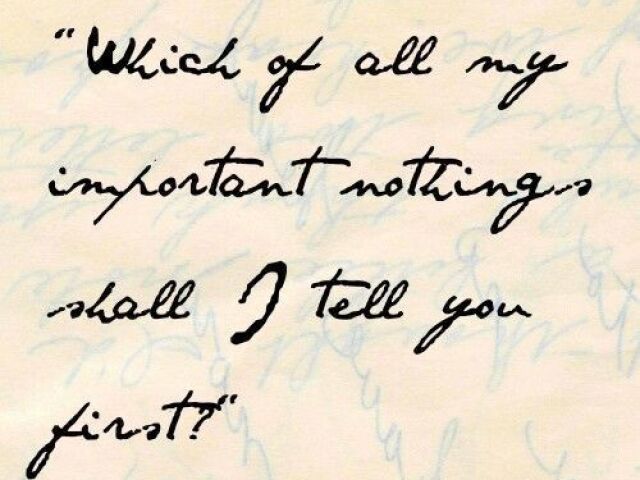 "Which of all my
important nothings
shall I tell you
first?"